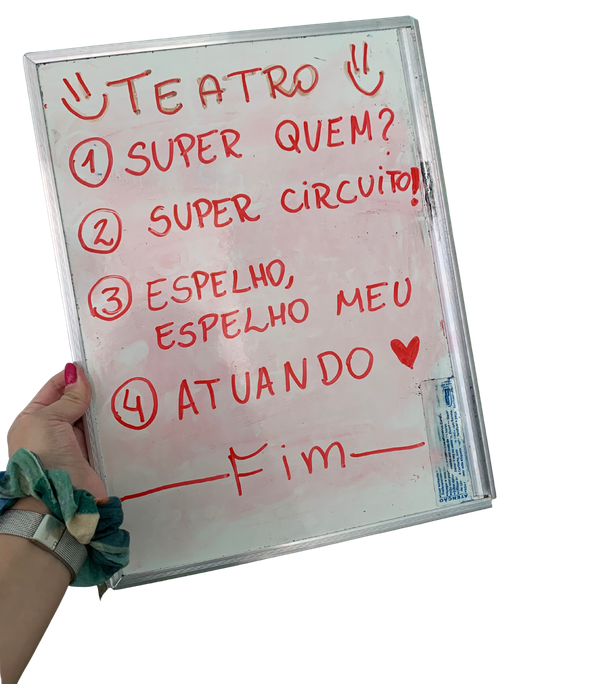 TEATRO
1 SUPER QUEM?
2 SUPER CiRCUiTO!
3 ESPELHO,
ESPELHO MEU
4 ATUANDO ♥
Fim
ATENÇÃO